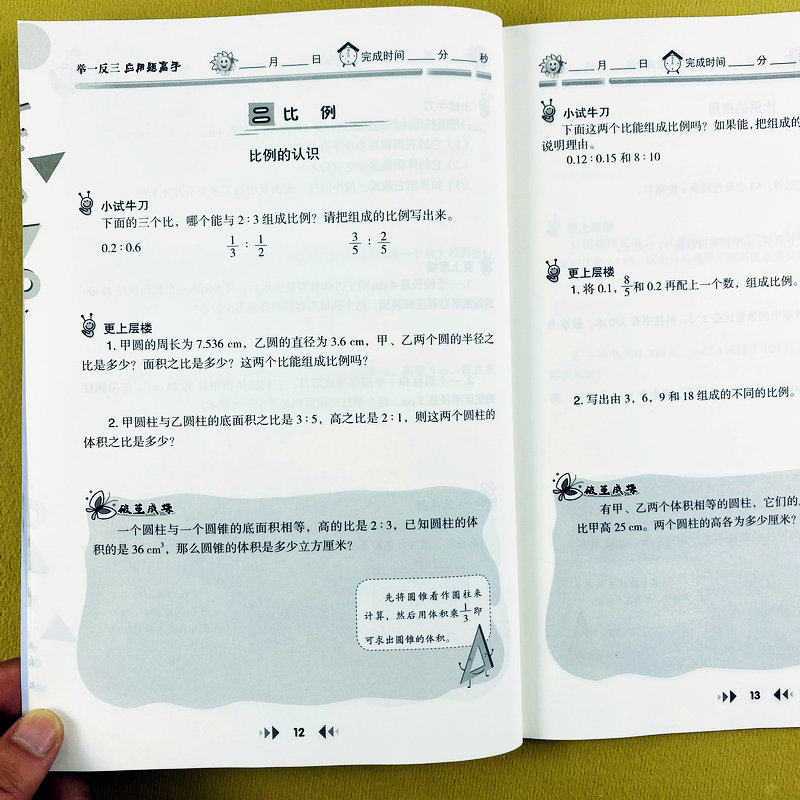 举一反三 应用题高手
____月____日 完成时间____分____秒
二 比 例
比例的认识
小试牛刀
下面的三个比，哪个能与 2∶3 组成比例？请把组成的比例写出来。
0.2∶0.6 1/3∶1/2 3/5∶2/5
更上层楼
1. 甲圆的周长为 7.536 cm，乙圆的直径为 3.6 cm，甲、乙两个圆的半径之
比是多少？面积之比是多少？这两个比能组成比例吗？
2. 甲圆柱与乙圆柱的底面积之比是 3∶5，高之比是 2∶1，则这两个圆柱的
体积之比是多少？
破茧成蝶
一个圆柱与一个圆锥的底面积相等，高的比是 2∶3，已知圆柱的体
积的是 36 cm³，那么圆锥的体积是多少立方厘米？
先将圆锥看作圆柱来
计算，然后用体积乘 1/3 即
可求出圆锥的体积。
12
____月____日 完成时间____分____
小试牛刀
下面这两个比能组成比例吗？如果能，把组成的
说明理由。
0.12∶0.15 和 8∶10
更上层楼
1. 将 0.1，8/5 和 0.2 再配上一个数，组成比例。
2. 写出由 3，6，9 和 18 组成的不同的比例。
破茧成蝶
有甲、乙两个体积相等的圆柱，它们的
比甲高 25 cm。两个圆柱的高各为多少厘米？
13